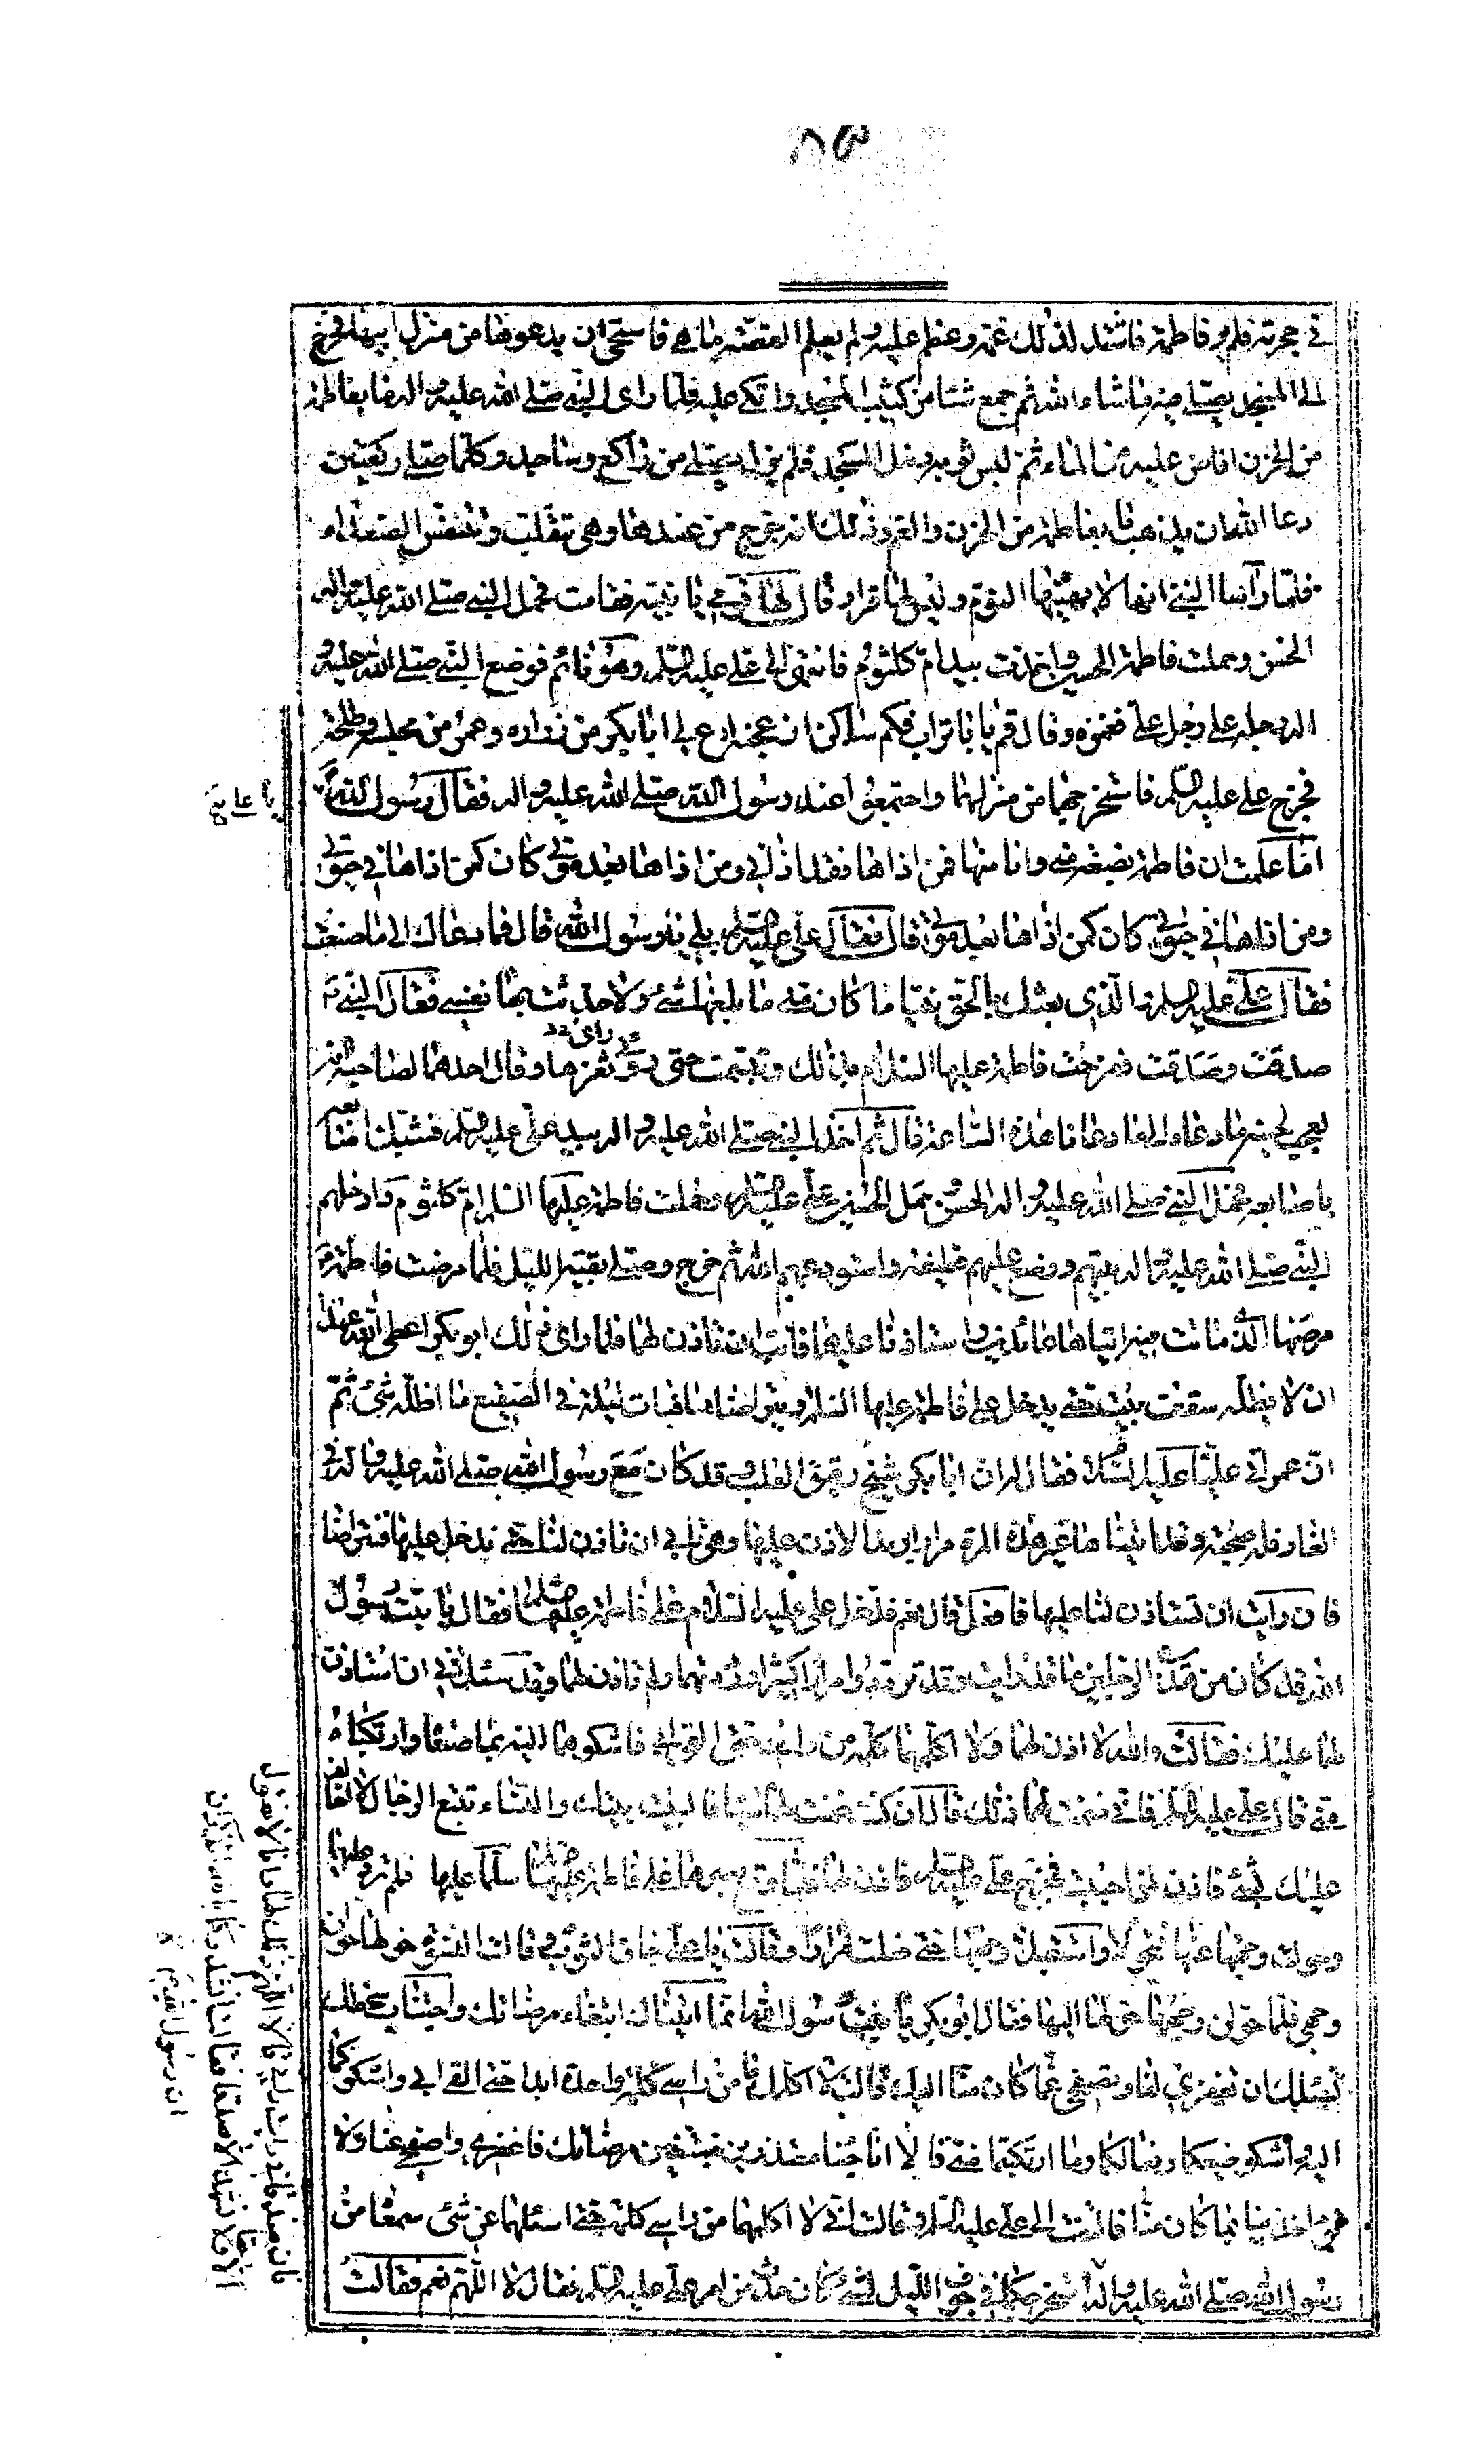 في حجرته فلم ير فاطمة فاشتد لذلك غمه وعظم عليه ولم يعلم القصة ما هي فاستحى ان يدعوها من منزل ابيها فخرج
الى المسجد يصلي فيه ما شاء الله ثم جمع شيئا من كثيب المسجد واتكى عليه فلما راى النبي صلى الله عليه واله ما بفاطمة
من الحزن افاض عليه من الماء ثم لبس ثوبه ودخل المسجد فلم يزل يصلي من راكع وساجد وكلما صلى ركعتين
دعا الله ان يذهب ما بفاطمة من الحزن والغم وذلك انه خرج من عندها وهي تتقلب وتتنفس الصعداء
فلما رآها النبي انها لا يهنيها النوم وليس لها قرار قال لها قومي يا بنية فقامت فحمل النبي صلى الله عليه واله
الحسن وحملت فاطمة الحسين واخذت بيد ام كلثوم فانتهى الى علي عليه السلم وهو نائم فوضع النبي صلى الله عليه و
اله رجله على رجل علي فغمزه وقال قم يا با تراب فكم ساكن ازعجته ادع لي ابا بكر من داره وعمر من مجلسه وطلحة
فخرج علي عليه السلم فاستخرجهما من منزلهما واجتمعوا عند رسول الله صلى الله عليه واله فقال رسول الله
يا علي
اما علمت ان فاطمة بضعة مني وانا منها فمن اذاها فقد اذاني ومن اذاها بعد موتي كان كمن اذاها في حيوتي
ومن اذاها في حيوتي كان كمن اذاها بعد موتي قال فقال علي عليه السلم بلى يا رسول الله قال فما دعاك الى ما صنعت
فقال علي عليه السلم والذي بعثك بالحق نبيا ما كان مني مما بلغها شيء ولا حدثت بها نفسي فقال النبي
صدقت وصدقت ففرحت فاطمة عليها السلام بذلك وتبسمت حتى رئي ثغرها وقال احدهما لصاحبه انه
لعجب لحينه ما دعاه الى ما دعانا هذه الساعة قال ثم اخذ النبي صلى الله عليه واله بيد علي عليه السلم فشبك اصابعه
باصابعه فحمل النبي صلى الله عليه واله الحسن وحمل الحسين علي عليه السلم وحملت فاطمة عليها السلام ام كلثوم وادخلهم
النبي صلى الله عليه واله بيتهم ووضع عليهم قطيفة واستودعهم الله ثم خرج وصلى بقية الليل فلما مرضت فاطمة
مرضها الذي ماتت فيه اتياها عائدين واستاذنا عليها فابت ان تاذن لهما فلما راى ذلك ابو بكر اعطى الله عهدا
ان لا يظله سقف بيت حتى يدخل على فاطمة عليها السلم ويتراضاها فبات ليلة في الصقيع ما اظله شيء ثم
ان عمر اتى عليا عليه السلام فقال له ان ابا بكر شيخ رقيق القلب وقد كان مع رسول الله صلى الله عليه واله في
الغار فله صحبة وقد اتيناها غير هذه المرة مرارا نريد الاذن عليها وهي تابى ان تاذن لنا حتى ندخل عليها فنتراضا
فان رايت ان تستاذن لنا عليها فافعل قال نعم فدخل علي عليه السلام على فاطمة عليها السلم فقال يا بنت رسول
الله قد كان من هذين الرجلين ما قد رايت وقد ترددا مرارا كثيرة ورددتهما ولم تاذني لهما وقد سئلاني ان استاذن
لهما عليك فقالت والله لا اذن لهما ولا اكلمهما كلمة من راسي حتى القى ابي فاشكوهما اليه بما صنعاه وارتكباه
مني قال علي عليه السلم فاني ضمنت لهما ذلك قالت ان كنت ضمنت لهما شيئا فالبيت بيتك والنساء تتبع الرجال لا اخالف
عليك بشيء فاذن لمن احببت فخرج علي عليه السلم فاذن لهما فلما وقع بصرهما على فاطمة عليها السلم سلما عليها فلم ترد عليهما
وحولت وجهها عنهما فتحولا واستقبلا وجهها حتى فعلت مرارا وقالت يا علي جاف الثوب وقالت لنسوة حولها حولن
وجهي فلما حولن وجهها حولا اليها فقال ابو بكر يا بنت رسول الله انما اتيناك ابتغاء مرضاتك واجتناب سخطك
نسئلك ان تغفري لنا وتصفحي عما كان منا اليك قالت لا اكلمكما من راسي كلمة واحدة ابدا حتى القى ابي واشكوكما
اليه واشكو صنيعكما وفعالكما وما ارتكبتما مني قالا انا جئنا معتذرين مبتغين مرضاتك فاغفري واصفحي عنا ولا
تؤاخذينا بما كان منا فالتفتت الى علي عليه السلم وقالت اني لا اكلمهما من راسي كلمة حتى اسئلهما عن شيء سمعاه من
رسول الله صلى الله عليه واله استخرجكما في جوف الليل لشيء كان حدث من امر علي عليه السلم فقالا اللهم نعم فقالت